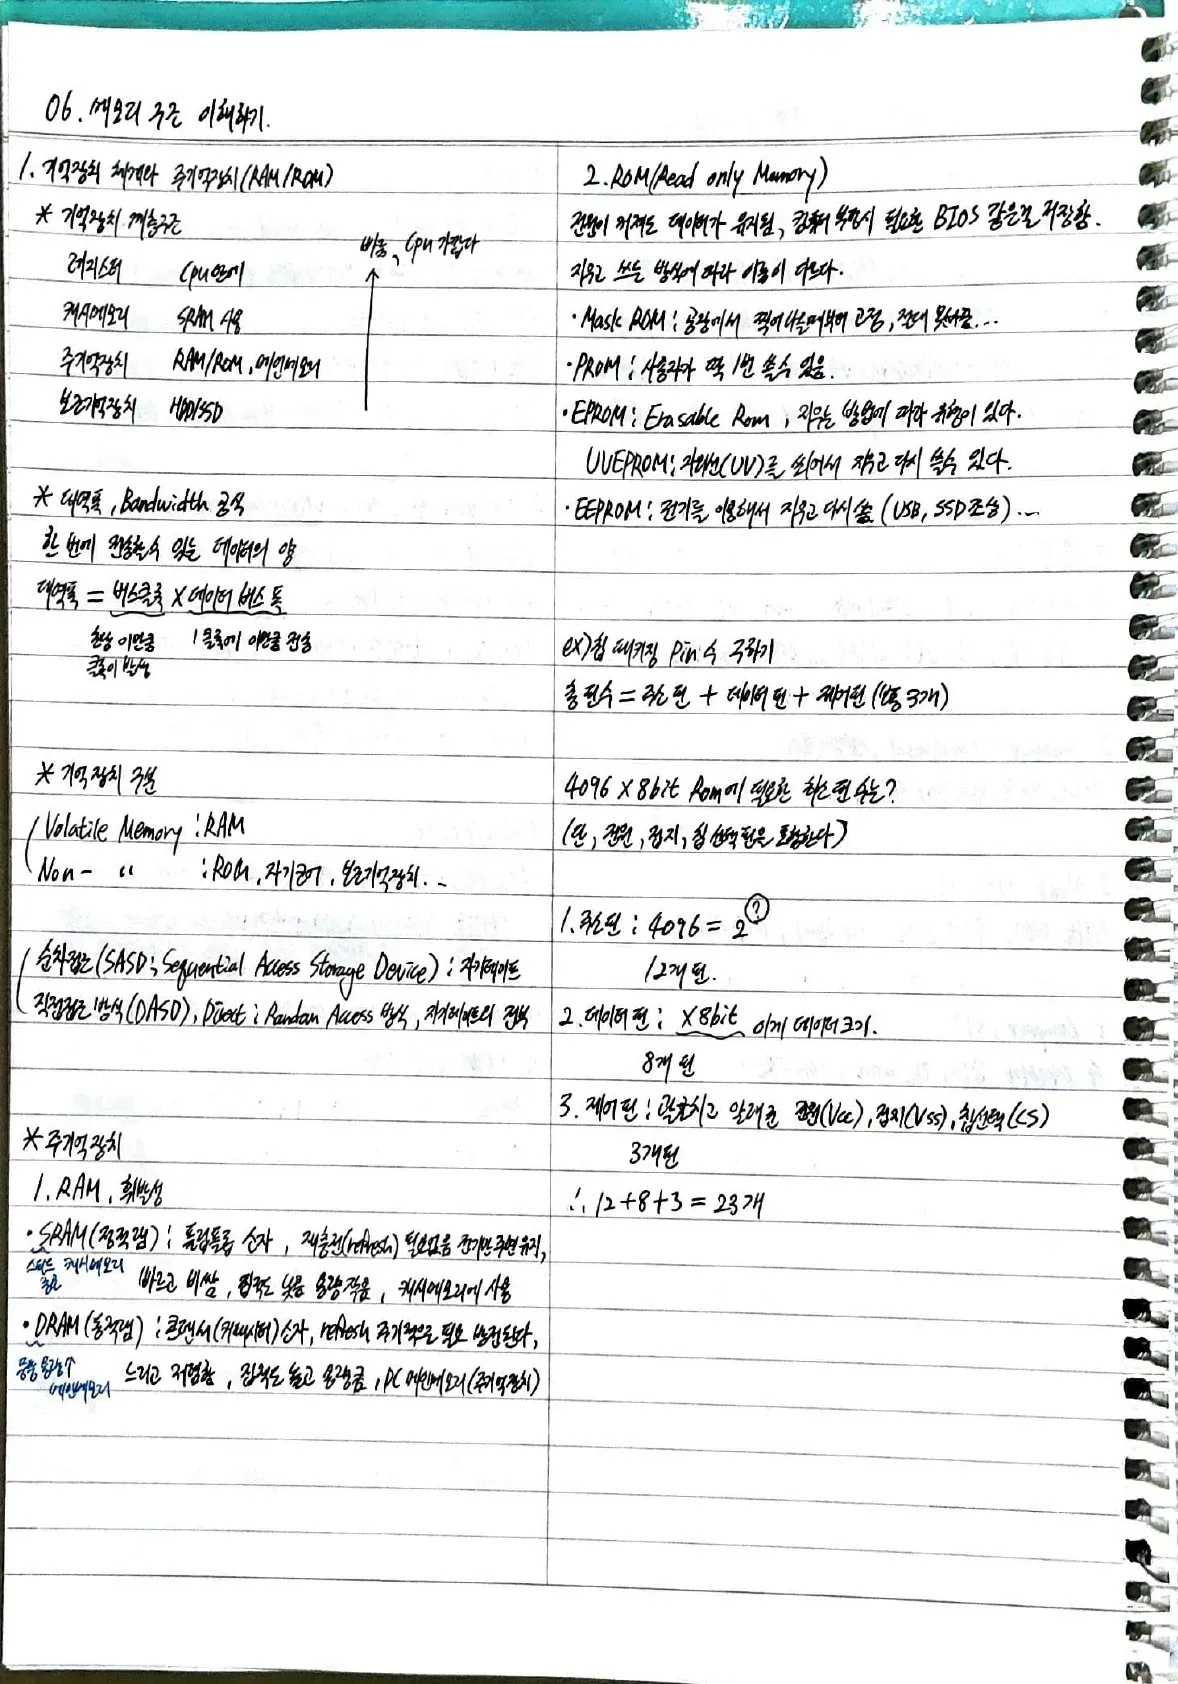 06. 메모리 구조 이해하기.
1. 기억장치 체계와 주기억장치(RAM/ROM)
* 기억장치 계층구조
비쌈, Cpu 가깝다
레지스터 Cpu안에
캐시메모리 SRAM 사용
주기억장치 RAM/ROM, 메인메모리
보조기억장치 HDD/SSD
* 대역폭, Bandwidth 공식
한 번에 전송할수 있는 데이터의 양
대역폭 = 버스클록 X 데이터 버스 폭
이만큼 1클록에 이만큼 전송
클록이 발생
* 기억장치 구분
Volatile Memory : RAM
Non- 〃 : ROM, 자기코어, 보조기억장치...
순차접근(SASD; Sequential Access Storage Device) : 자기테이프
직접접근 방식(DASD), Direct ; Random Access 방식, 자기테이프외 전부
* 주기억장치
1. RAM, 휘발성
· SRAM(정적램) : 플립플롭 소자, 재충전(refresh) 필요없음 전기만 주면 유지,
스피드 캐시메모리
빠르고 비쌈, 집적도 낮음 용량작음, 캐시메모리에 사용
· DRAM(동적램) : 콘덴서(커패시터)소자, refresh 주기적으로 필요
용량↑
메인메모리
느리고 저렴함, 집적도 높고 용량큼, PC 메인메모리(주기억장치)
2. ROM(Read only Memory)
전원이 꺼져도 데이터가 유지됨, 컴퓨터 부팅시 필요한 BIOS 같은걸 저장함.
지우고 쓰는 방식에 따라 이름이 다르다.
· Mask ROM : 공장에서 찍어나올때부터 고정, 절대 못바꿈...
· PROM : 사용자가 딱 1번 쓸수 있음.
· EPROM : Erasable Rom, 지우는 방법에 따라 유형이 있다.
UVEPROM : 자외선(UV)를 쐬어서 지우고 다시 쓸수 있다.
· EEPROM : 전기를 이용해서 지우고 다시 씀 (USB, SSD조상)...
ex) 칩 패키징 Pin수 구하기
총 핀수 = 주소 핀 + 데이터 핀 + 제어핀 (보통 3개)
4096 X 8bit Rom에 필요한 최소 핀 수는?
(단, 전원, 접지, 칩 선택 핀을 포함한다)
1. 주소핀 : 4096 = 2^?
12개 핀.
2. 데이터 핀 : X8bit 이게 데이터 크기.
8개 핀
3. 제어 핀 : 괄호치고 알려준 전원(Vcc), 접지(Vss), 칩선택(CS)
3개핀
∴ 12+8+3 = 23개